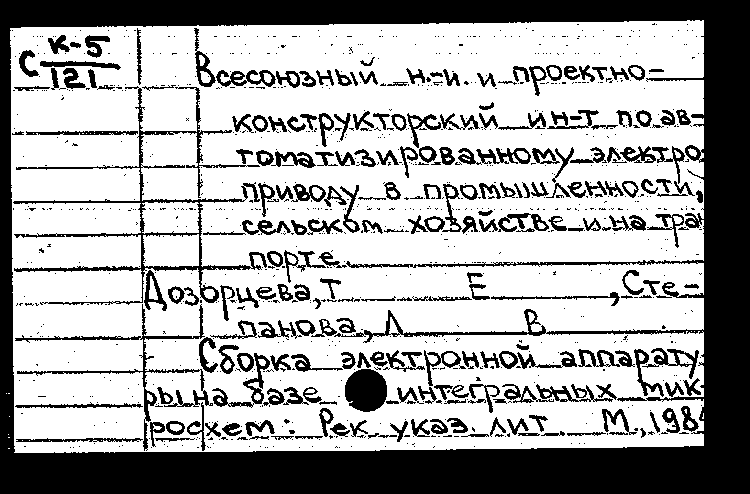 С К-5
121
Всесоюзный н.-и. и проектно-
конструкторский ин-т по ав-
томатизированному электро
приводу в промышленности,
сельском хозяйстве и на тран
порте.
Дозорцева, Т Е , Сте-
панова, Л В .
Сборка электронной аппарату
ры на базе интегральных мик
росхем: Рек. указ. лит. М., 198